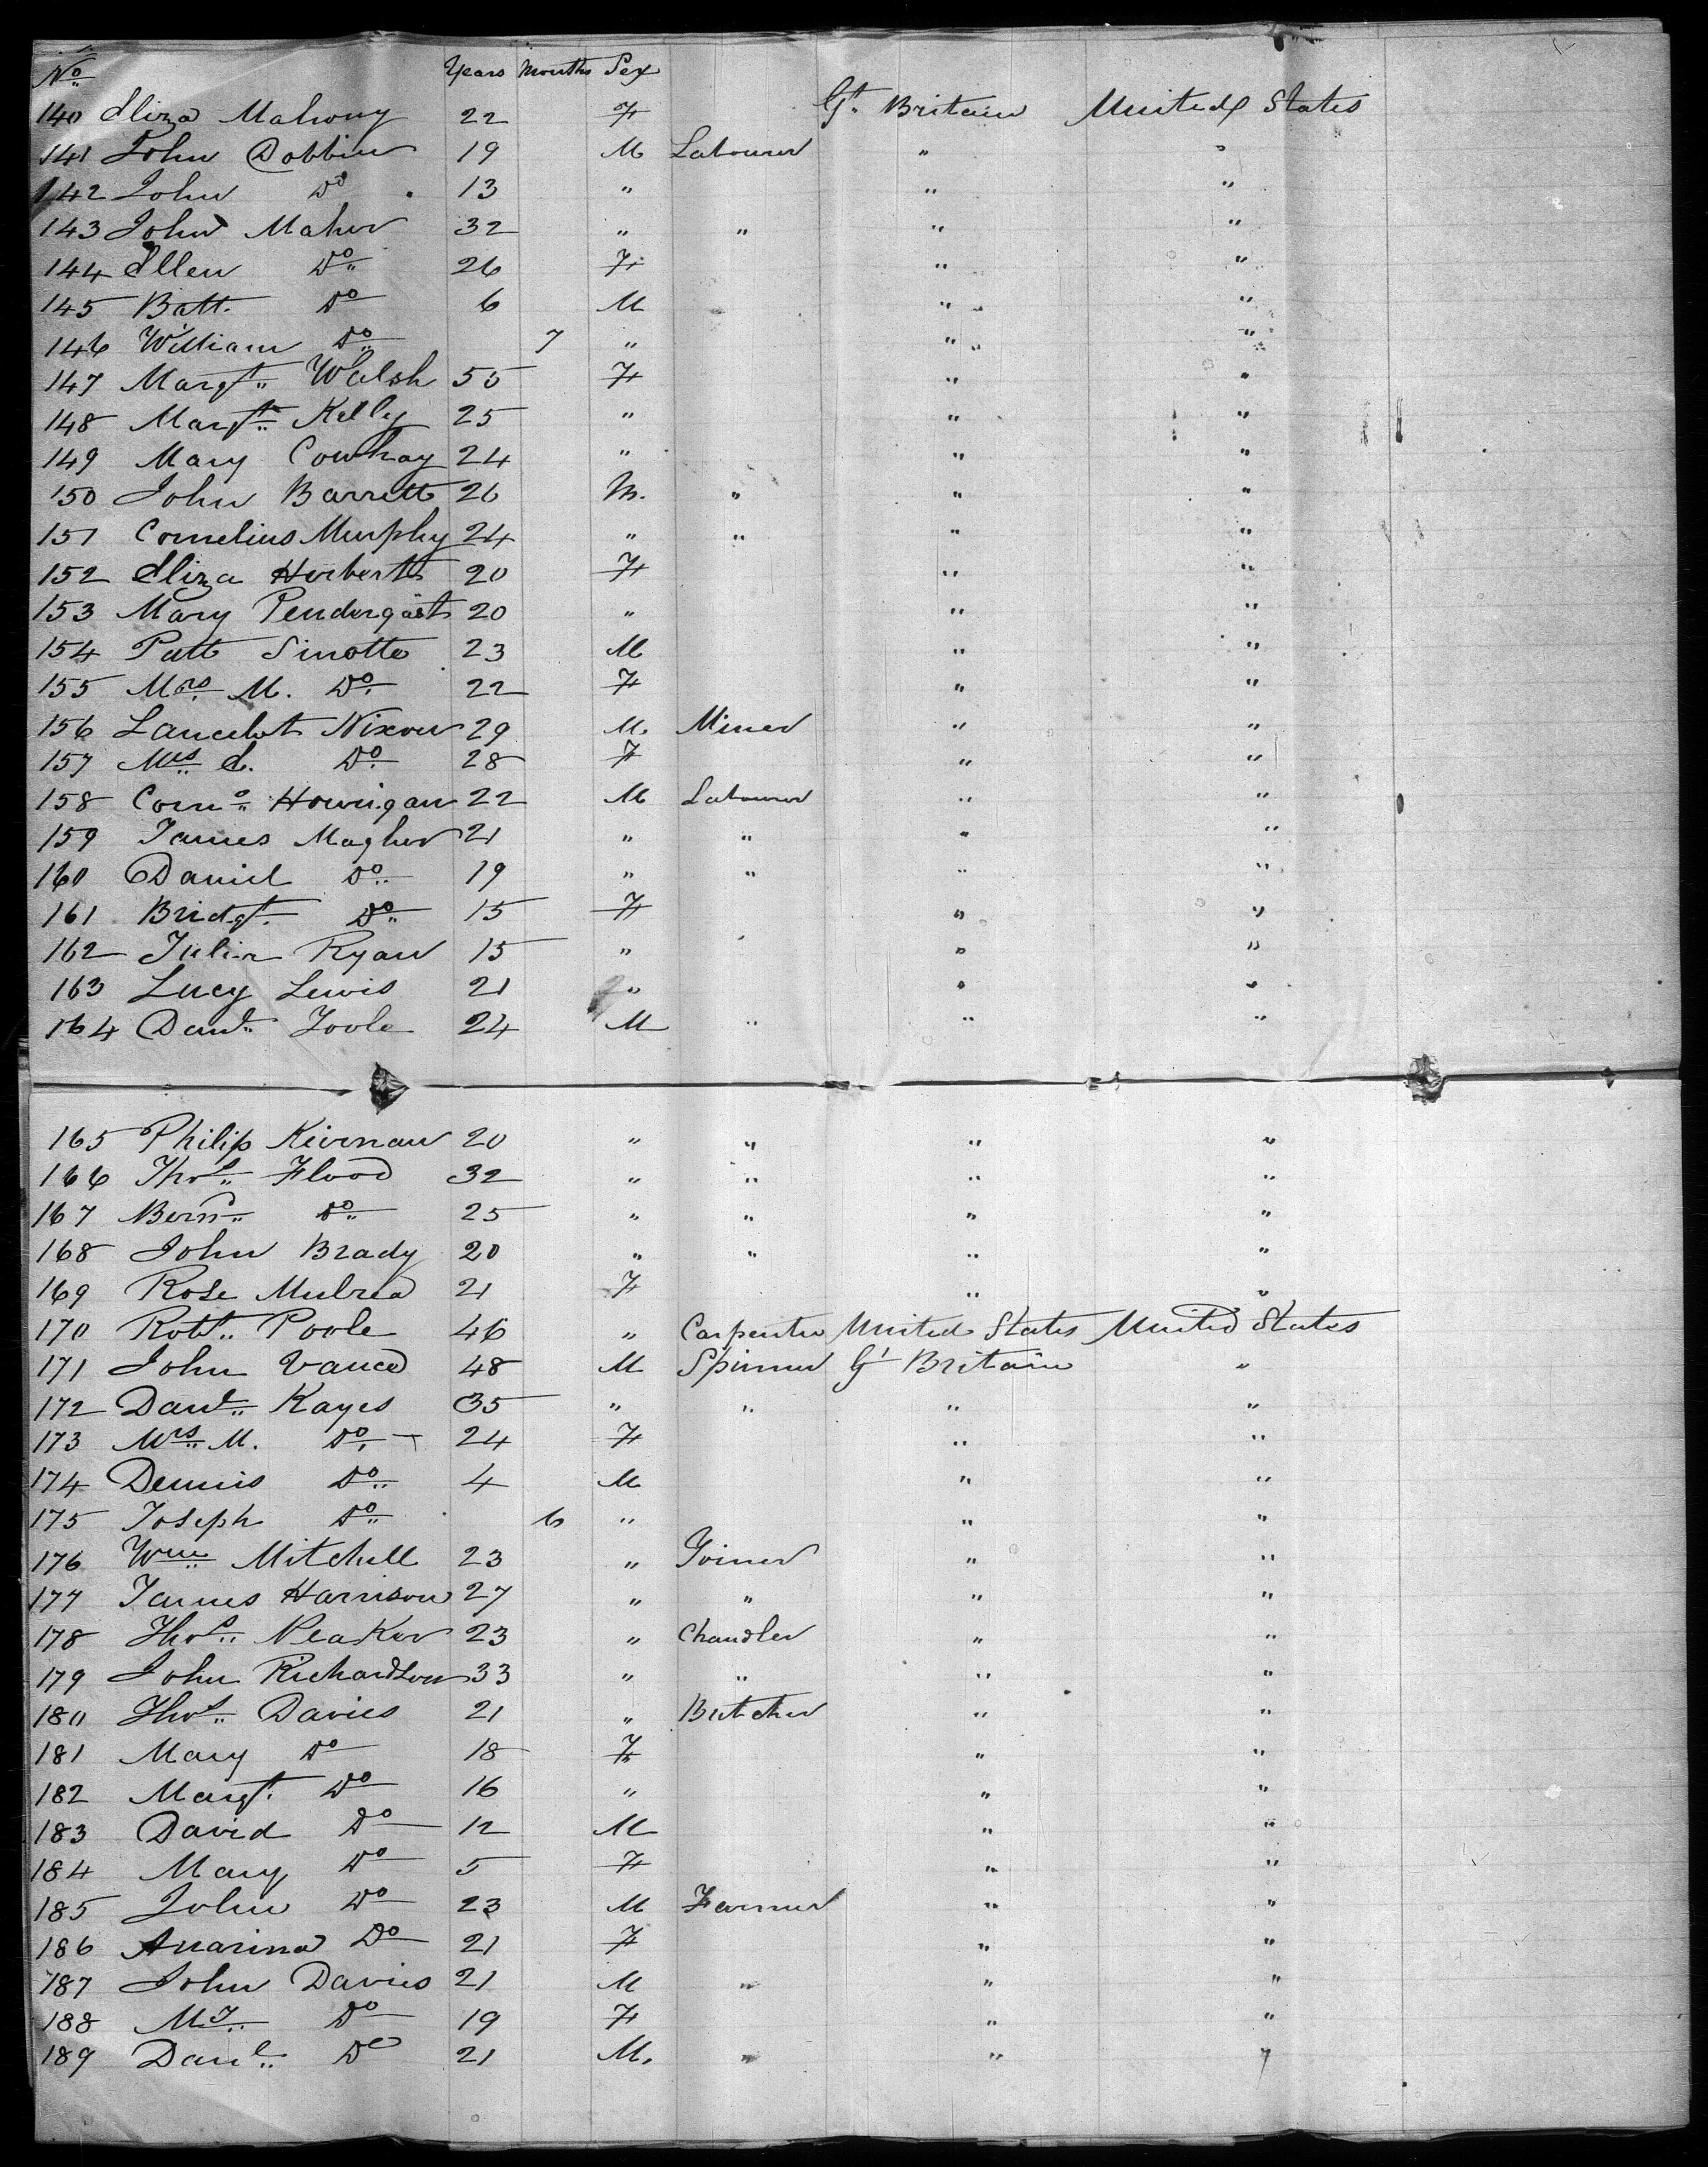 No Years Months Sex
140 Eliza Mahony 22 F Gt. Britain United States
141 John Dobbin 19 M Labourer " "
142 John Do 13 " " "
143 John Maher 32 " " " "
144 Ellen Do 26 F " "
145 Batt. Do 6 M " "
146 William Do 7 " " "
147 Margt. Walsh 55 F " "
148 Margt. Kelly 25 " " "
149 Mary Cowhay 24 " " "
150 John Barrett 26 M. " " "
151 Cornelius Murphy 24 " " " "
152 Eliza Herbert 20 F " "
153 Mary Pendergast 20 " " "
154 Patt Sinotte 23 M " "
155 Mrs M. Do. 22 F " "
156 Lancelot Nixon 29 M. Miner " "
157 Mrs E. Do. 28 F " "
158 Corns. Hourigan 22 M Labourer " "
159 James Magher 21 " " " "
160 Daniel Do 19 " " " "
161 Bridgt. Do 15 F " "
162 Julia Ryan 15 " " "
163 Lucy Lewis 21 " " "
164 Danl. Toole 24 M " " "
165 Philip Kiernan 20 " " " "
166 Thos. Flood 32 " " " "
167 Bernd. Do 25 " " " "
168 John Brady 20 " " " "
169 Rose Mulrea 21 F " "
170 Robt. Poole 46 " Carpenter United States United States
171 John Vance 48 M Spinner Gt Britain "
172 Danl. Kayes 35 " " " "
173 Mrs M. Do. 24 F " "
174 Dennis Do 4 M " "
175 Joseph Do 6 " " "
176 Wm Mitchell 23 " Joiner " "
177 James Harrison 27 " " " "
178 Thos. Neaker 23 " Chandler " "
179 John Richardson 33 " " " "
180 Thos. Davies 21 " Butcher " "
181 Mary Do 18 F " "
182 Margt. Do 16 " " "
183 David Do 12 M " "
184 Mary Do 5 F " "
185 John Do 23 M Farmer " "
186 Anarina Do 21 F " "
187 John Davies 21 M " " "
188 Do 19 F " "
189 Danl. Do 21 M. " " "